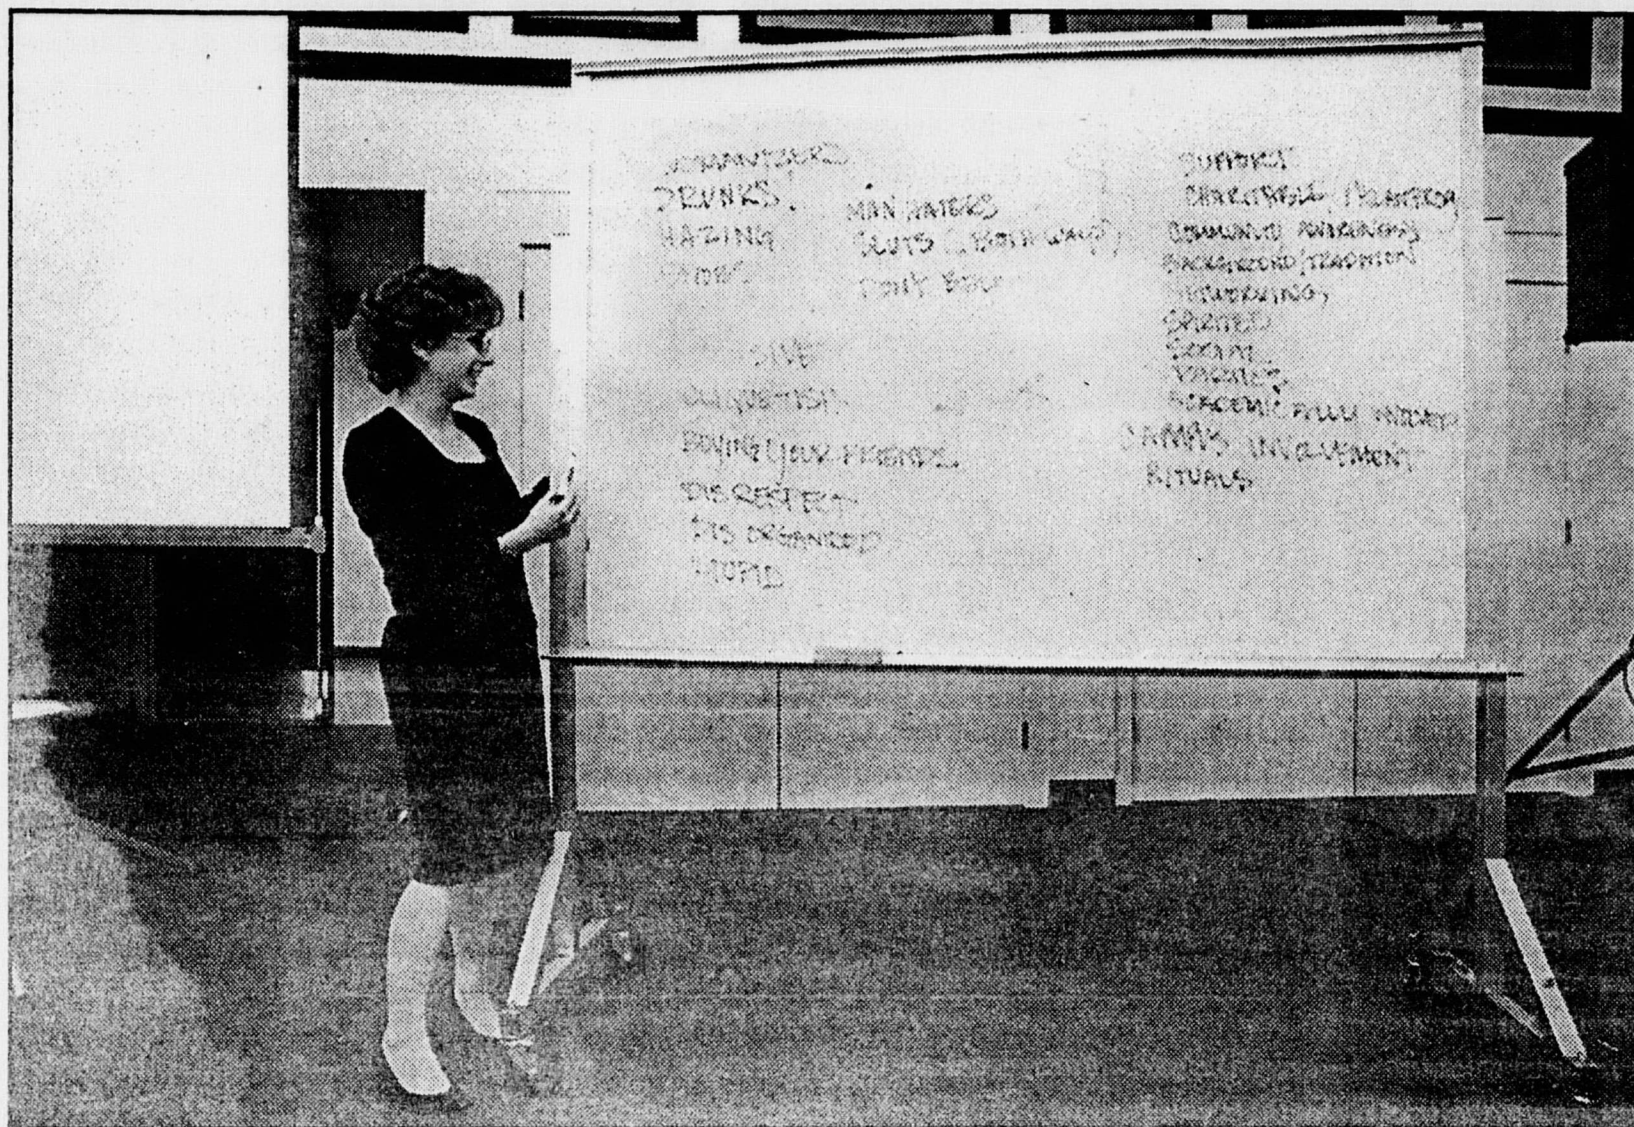 WOMANIZERS
DRUNKS
HAZING
SNOBS
MAN HATERS
SLUTS (BOTH WAYS)
CLIQUETISH
BUYING YOUR FRIENDS
DISRESPECT
DISORGANIZED
STUPID
SUPPORT
CHARITABLE /
COMMUNITY AWARENESS
BACKGROUND/TRADITION
NETWORKING
SPIRITED
SOCIAL
VALUES
CAMPUS INVOLVEMENT
RITUALS